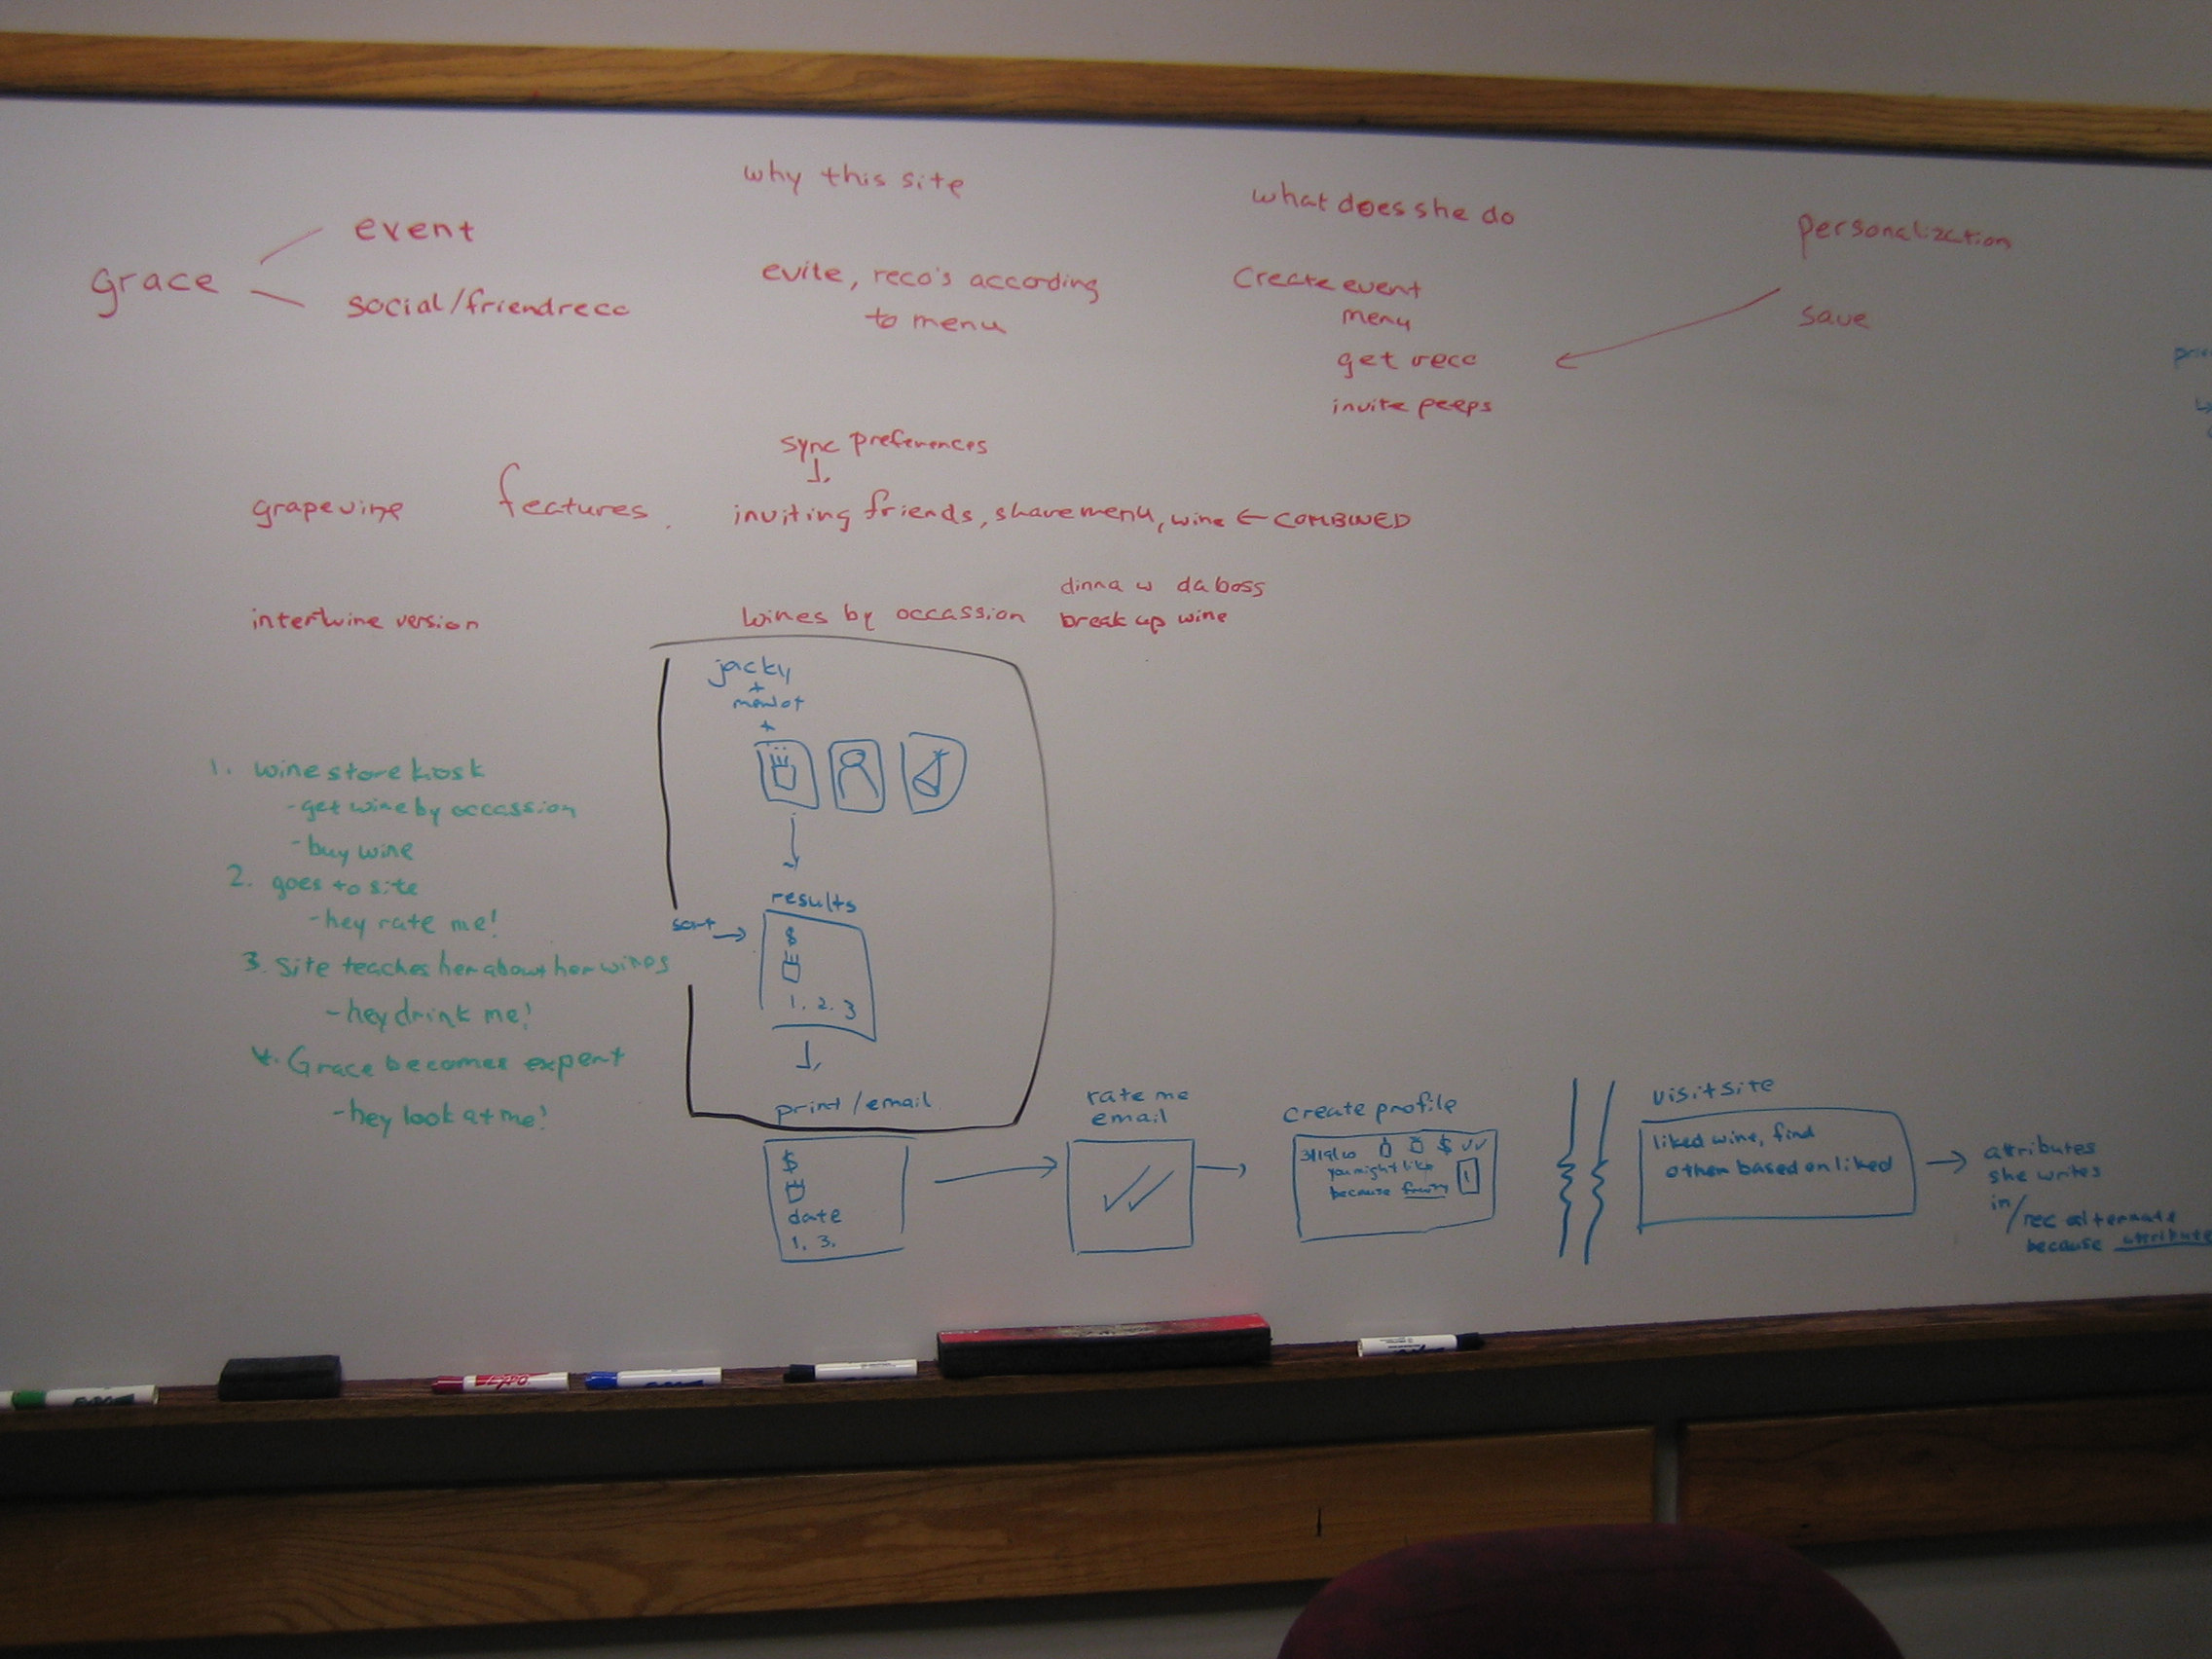 why this site
what does she do
personalization
event
grace
social/friendrecc
evite, reco's according
to menu
Create event
menu
get recc
invite peeps
save
sync preferences
grapevine
features
inviting friends, share menu, wine ← COMBINED
dinna w da boss
intertwine version
wines by occassion
break up wine
jacky
+
merlot
+
1. wine store kiosk
- get wine by occassion
- buy wine
2. goes to site
- hey rate me!
3. Site teaches her about her wines
- hey drink me!
4. Grace becomes expert
- hey look at me!
results
sort →
$
1. 2. 3
print / email
$
date
1. 3.
rate me
email
create profile
$
you might like
because
1
visit site
liked wine, find
other based on liked
attributes
she writes
in/rec alternate
because attribute
EXPO